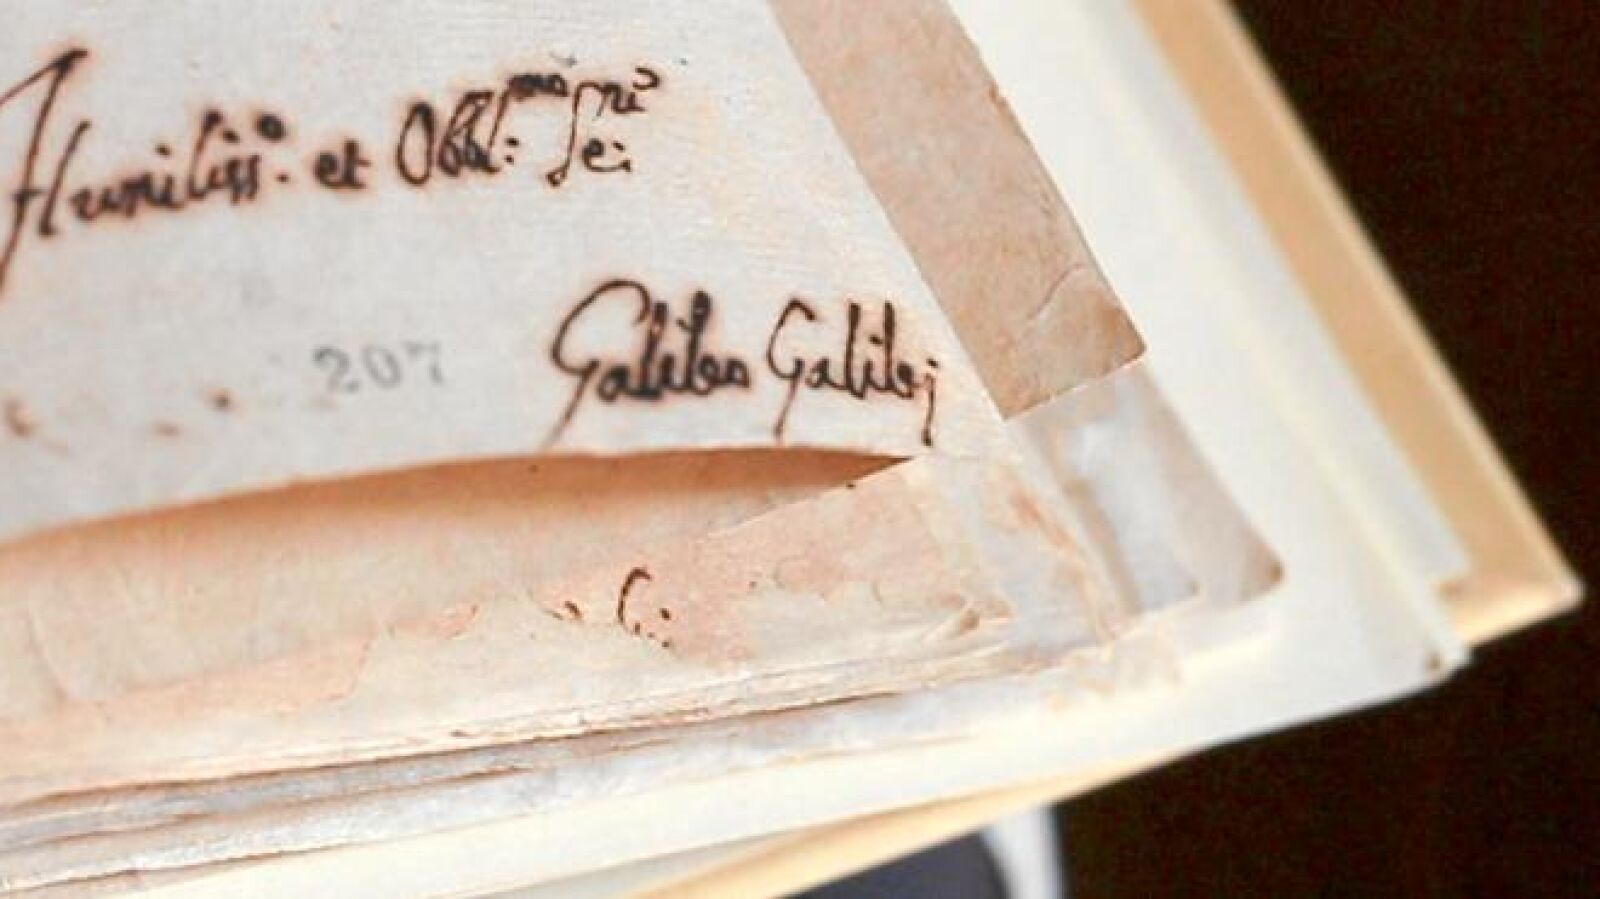 Humiliss.o et Obbl:mo Ser.re
207
Galileo Galilei